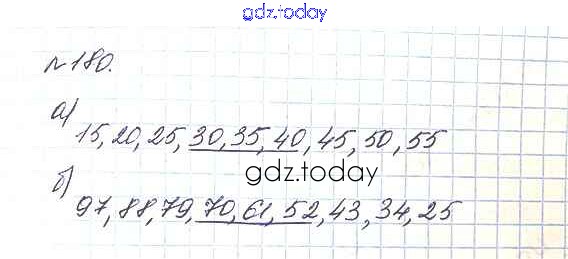 gdz.today
№180.
а)
15, 20, 25, 30, 35, 40, 45, 50, 55
gdz.today
б)
97, 88, 79, 70, 61, 52, 43, 34, 25